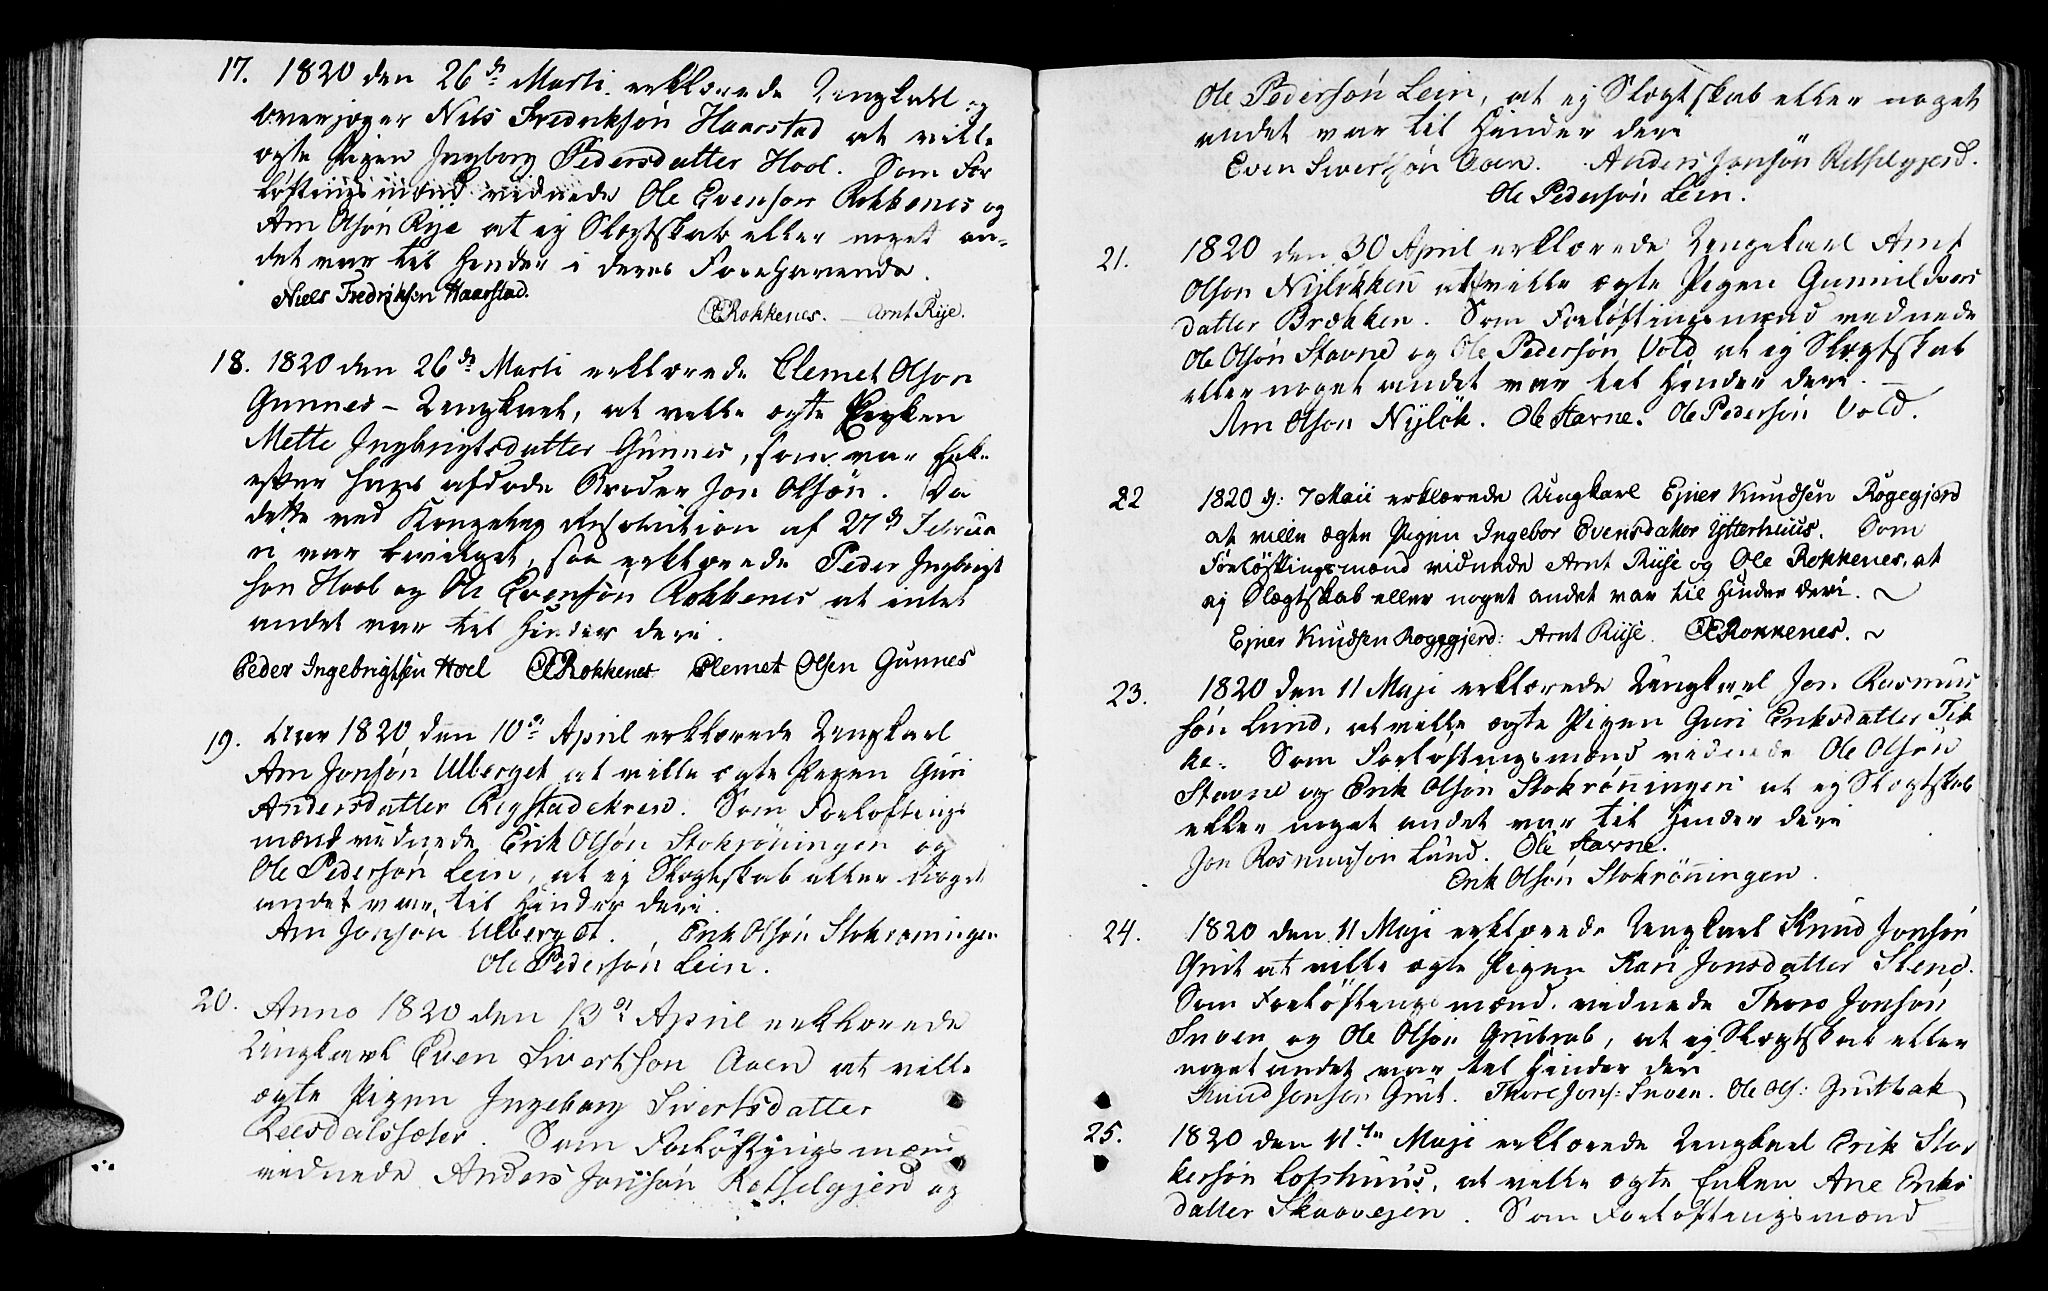 17. 1820 den 26de Marti erklærede Ungkarl og
overjæger Nils Fredriksøn Haarstad at ville
ægte Pigen Ingborg Pedersdatter Hool. Som For
løftningsmænd vidnede Ole Evensøn Rokkenes og
Arn Olsøn Rije at ej Slægtskab eller noget an-
det var til Hinder i deres Forehavende.
Niels Fredriksen Haarstad.
OERokkenes. Arnt Rije.
18. 1820 den 26de Marti erklærede Clemet Olson
Gunnes – Ungkarl, at ville ægte Enken
Mette Ingbrigtsdatter Gunnes, som var Enke
efter hans afdøde Broder Jon Olsøn. Da
dette ved Kongeleg Resolution af 27de Februa
ri var bevilget, saa erklærede Peder Ingbrigt
søn Hool og Ole Evensøn Rokkenes at intet
andet var til Hinder deri.
Peder Ingebrigtsen Hoel OERokkenes Clemet Olsen Gunnes
19. Aar 1820 den 10de April erklærede Ungkarl
Arn Jonsøn Ulberget at ville ægte Pigen Guri
Andersdatter Rigstadekren. Som Forløftnings
mænd vidnede Erik Olsøn Stokrøningen og
Ole Pedersøn Lein, at ej Slægtskab eller noget
andet var til Hinder deri.
Arn Jonson Ulberget. Erik Olsøn Stokrøningen
Ole Pedersøn Lein.
20. Anno 1820 den 13de April erklærede
Ungkarl Even Sivertsøn Aaen at ville
ægte Pigen Ingeborg Sivertsdatter
Som Forløftnings mænd
vidnede Anders Jonsøn Retselgjerd og
Ole Pedersøn Lein, at ej Slægtskab eller noget
andet var til Hinder deri
Even Sivertsøn Aaen. Anders Jonsøn Retselgjerd.
Ole Pedersøn Lein.
21. 1820 den 30 April erklærede Ungekarl Arnt
Olson Nyløkken at ville ægte Pigen Gunnild Ivers
datter Brækken. Som Forløftningsmænd vidnede
Ole Olsøn Stavne og Ole Pedersøn Vold at ej Slægtskab
eller noget andet var til Hinder deri.
Arn Olson Nyløk. Ole Stavne. Ole Pedersøn Vold.
22 1820 d: 7 Maii erklærede Ungkarl Ejner Knudsen Rogegjerd
at ville ægte Pigen Ingebor Evensdatter Ytterhuus. Som
Forløftningsmænd vidnede Arnt Riise og Ole Rokkenes, at
ej Slægtskab eller noget andet var til Hinder deri. ~
Ejner Knudsen Rogegjerd: Arnt Riise. OERokkenes. ~
23. 1820 den 11 Maji erklærede Ungkarl Jon Rasmus
søn Lund, at ville ægte Pigen Guri Eriksdatter Fik
ke. Som Forløftningsmænd vidnede Ole Olsøn
Stavne og Erik Olsøn Stokrønningen at ej Slægtskab
eller noget andet var til Hinder deri
Jon Rasmusøn Lund. Ole Stavne.
Erik Olsøn Stokrønningen.
24. 1820 den 11 Maji erklærede Ungkarl Knud Jonsøn
Grut at ville ægte Pigen Kari Jonsdatter Stene.
Som Forløftnings mænd vidnede Thore Jonsøn
Snoen og Ole Olsøn Grutbak, at ej Slægtskab eller
noget andet var til Hinder deri
Knud Jonsøn Grut. Thore Jons: Snoen. Ole Ols: Grutbak
25. 1820 den 11te Maji erklærede Ungkarl Erik Stor
kersøn Lofshuus, at ville ægte Enken Ane Eriks
datter Skaavejen. Som Forløftningsmænd